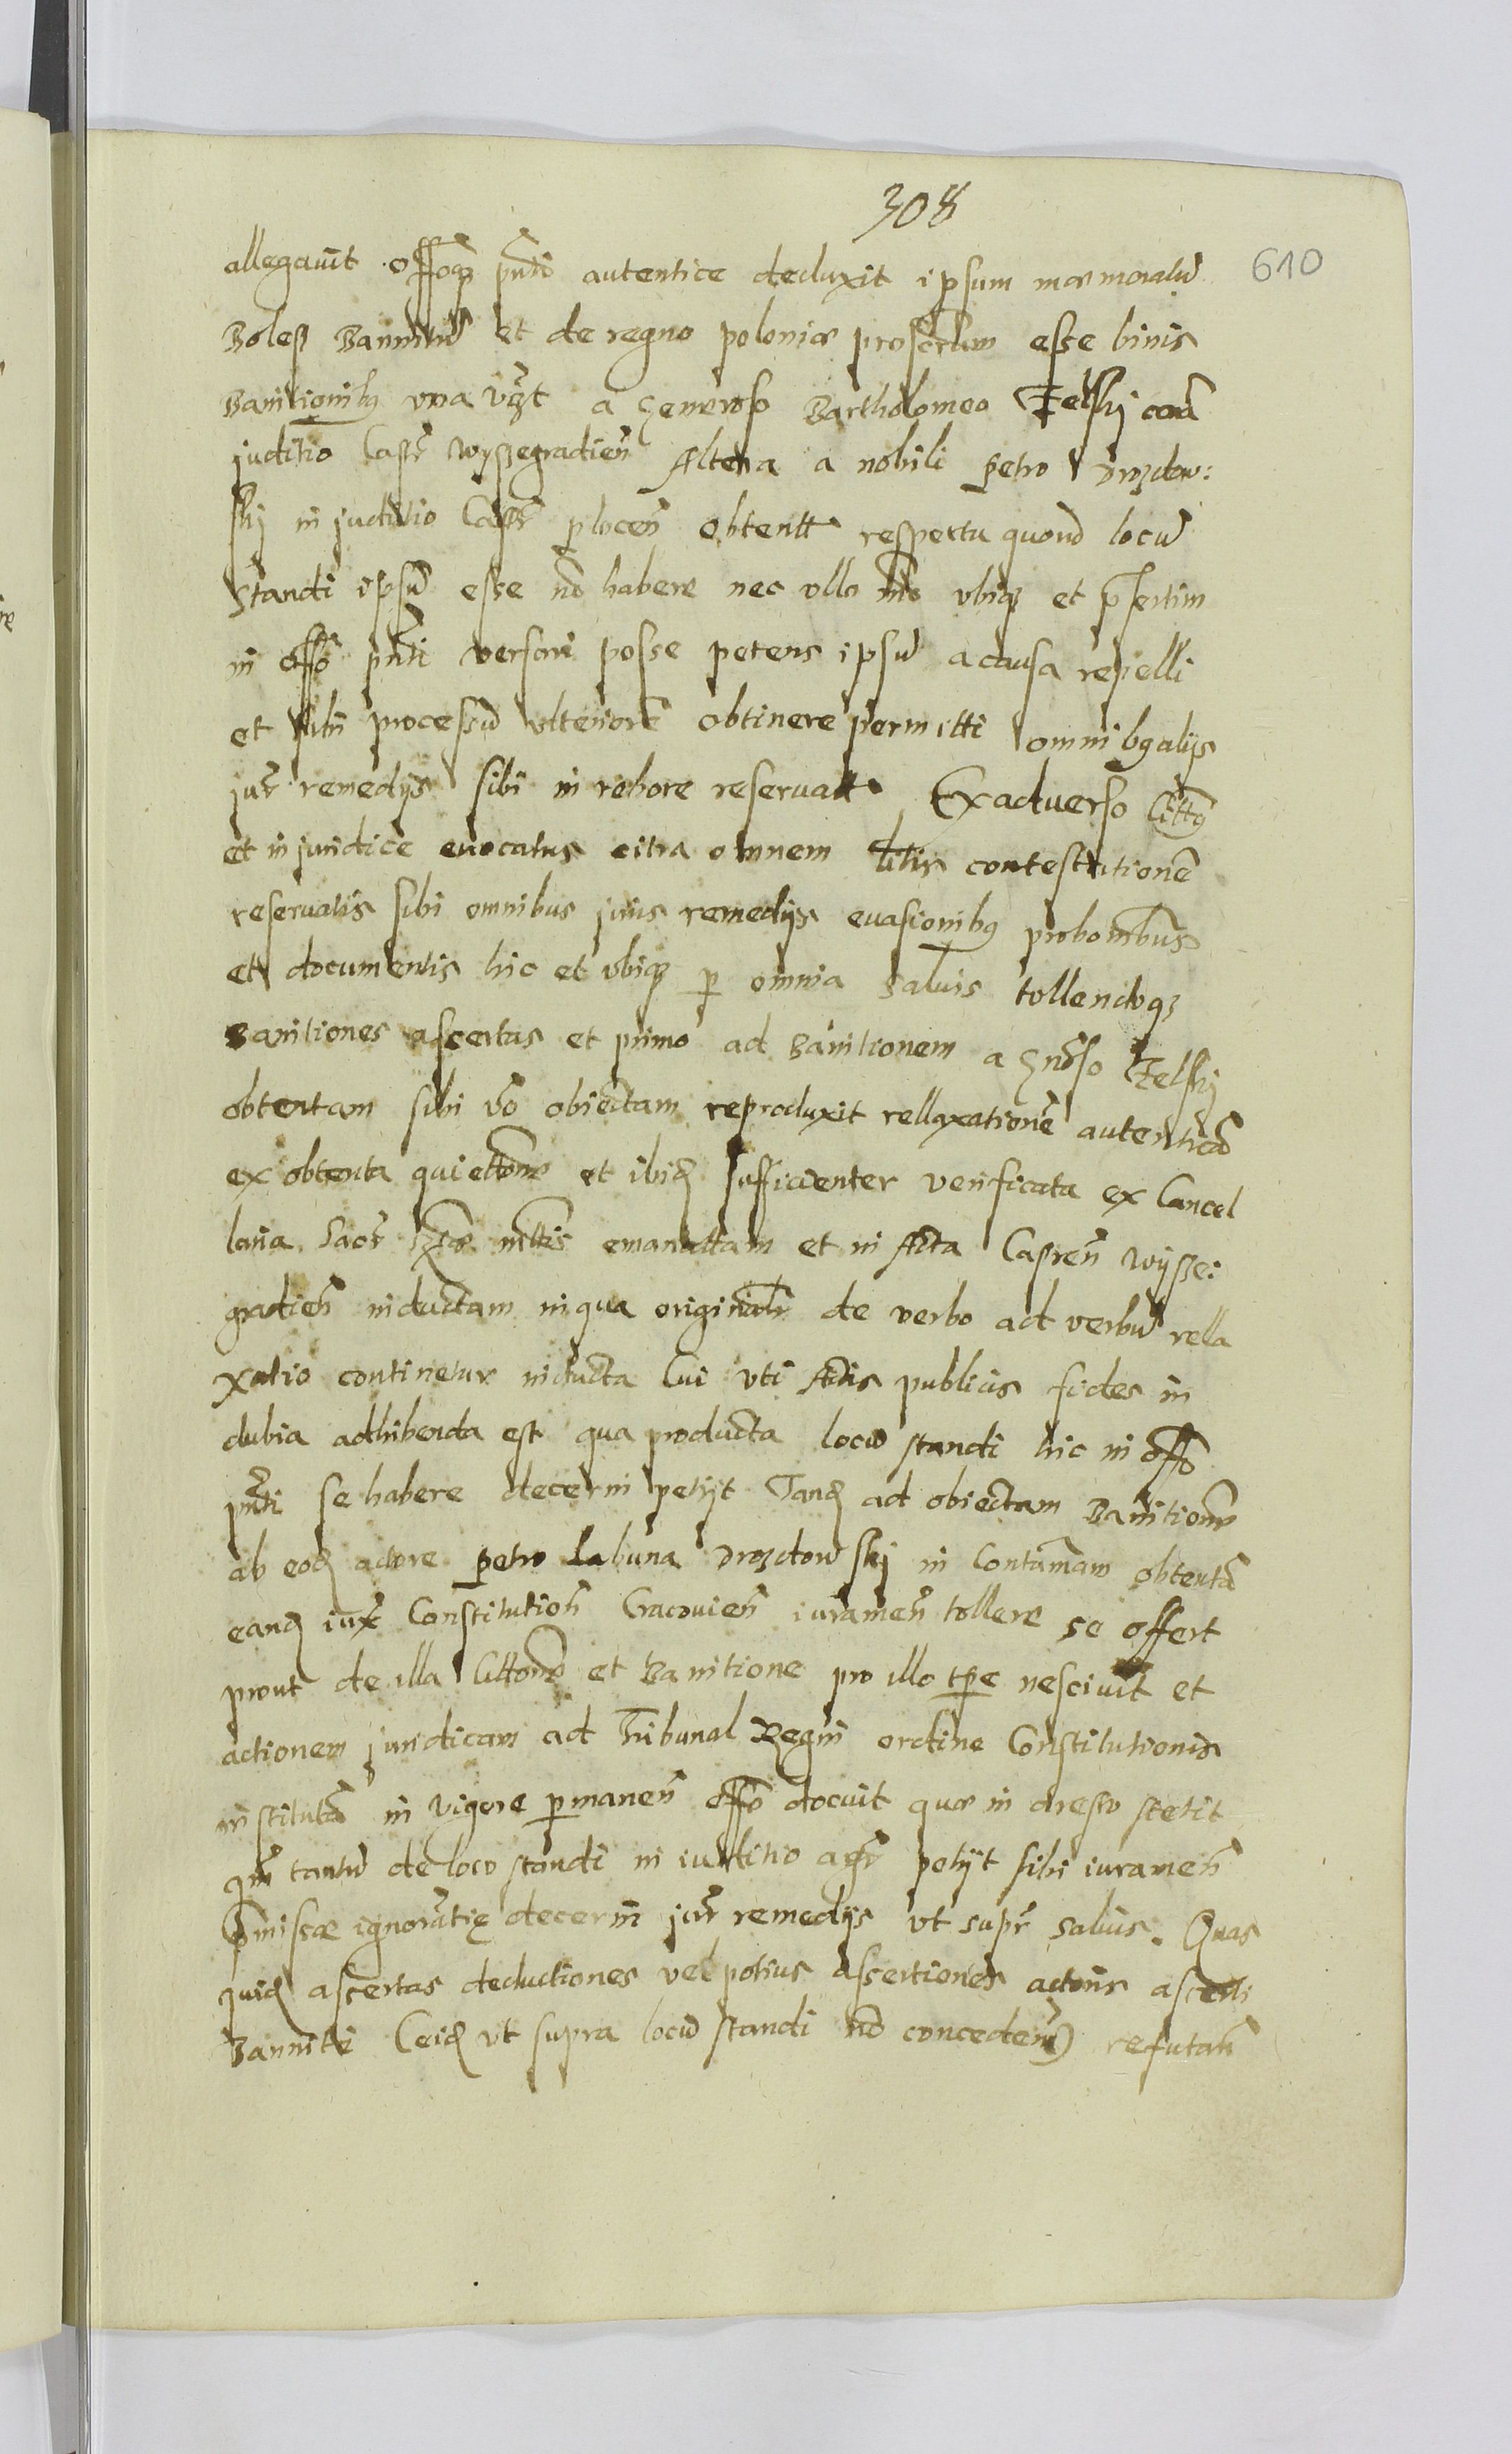 308
610
allegavit offoq pnti autentice deduxit ipsum
Boless Bannitu et de regno poloniæ proscriptum esse binis
Banitionibq una vzt a Generoso Bartholomeo Felski cora
juditio Castr Wyssegradien Altera a nobili petro Drozdow:
ski in juditio Castr plocen obtentt respectu quoru locu
standi ipsu esse no habere nec ullo mo ubiq et pśertim
in offo pnti versari posse petens ipsu a causa repelli
et processu ulteriore obtinere permitti omnibq alijs
jur remedijs sibi in robore reservatt Ex adverso Citta
et in juridice evocatus citra omnem litis contestatione
reservatis sibi omnibus juris remedijs evasionibq probonibus
et documentis hic et ubiq p omnia salvis tollendoq
Banitiones assertas et primo ad Banitionem a Gnoso Felski
obtentam sibi vo obiectam reproduxit rellaxatione autentica
ex obtenta quiettone et ibid sufficienter verificata ex Cancel
laria Sacr Rgiæ mttis emanattam et in Acta Castren Wysse:
gradien inductam in qua originalr de verbo ad verbu rella
xatio continetur inducta Cui uti Actis publicis fides in
dubia adhibenda est qua producta locu standi hic in offo
pnti se habere decerni petijt Tand ad obiectam Banitione
ab eod actore petro Labuna Drozdowski in Contumam obtenta
eand iux Constitution Cracovien iuramen tollere se offert
prout de illa Cittone et Banitione pro illo tpe nescivit et
actionem juridicam ad Tribunal Regni ordine Constitutionis
instituta in vigore pmanen offo docuit quæ in aresto stetit
qm tantu de loco standi in iuditio agr petijt sibi iuramen
pmissæ ignorātię decerni jur remedijs ut supr salvis. Quas
quid assertas deductiones vel potius assertiones actoris asserti
Banniti (eid ut supra locu standi no conceden) refutan